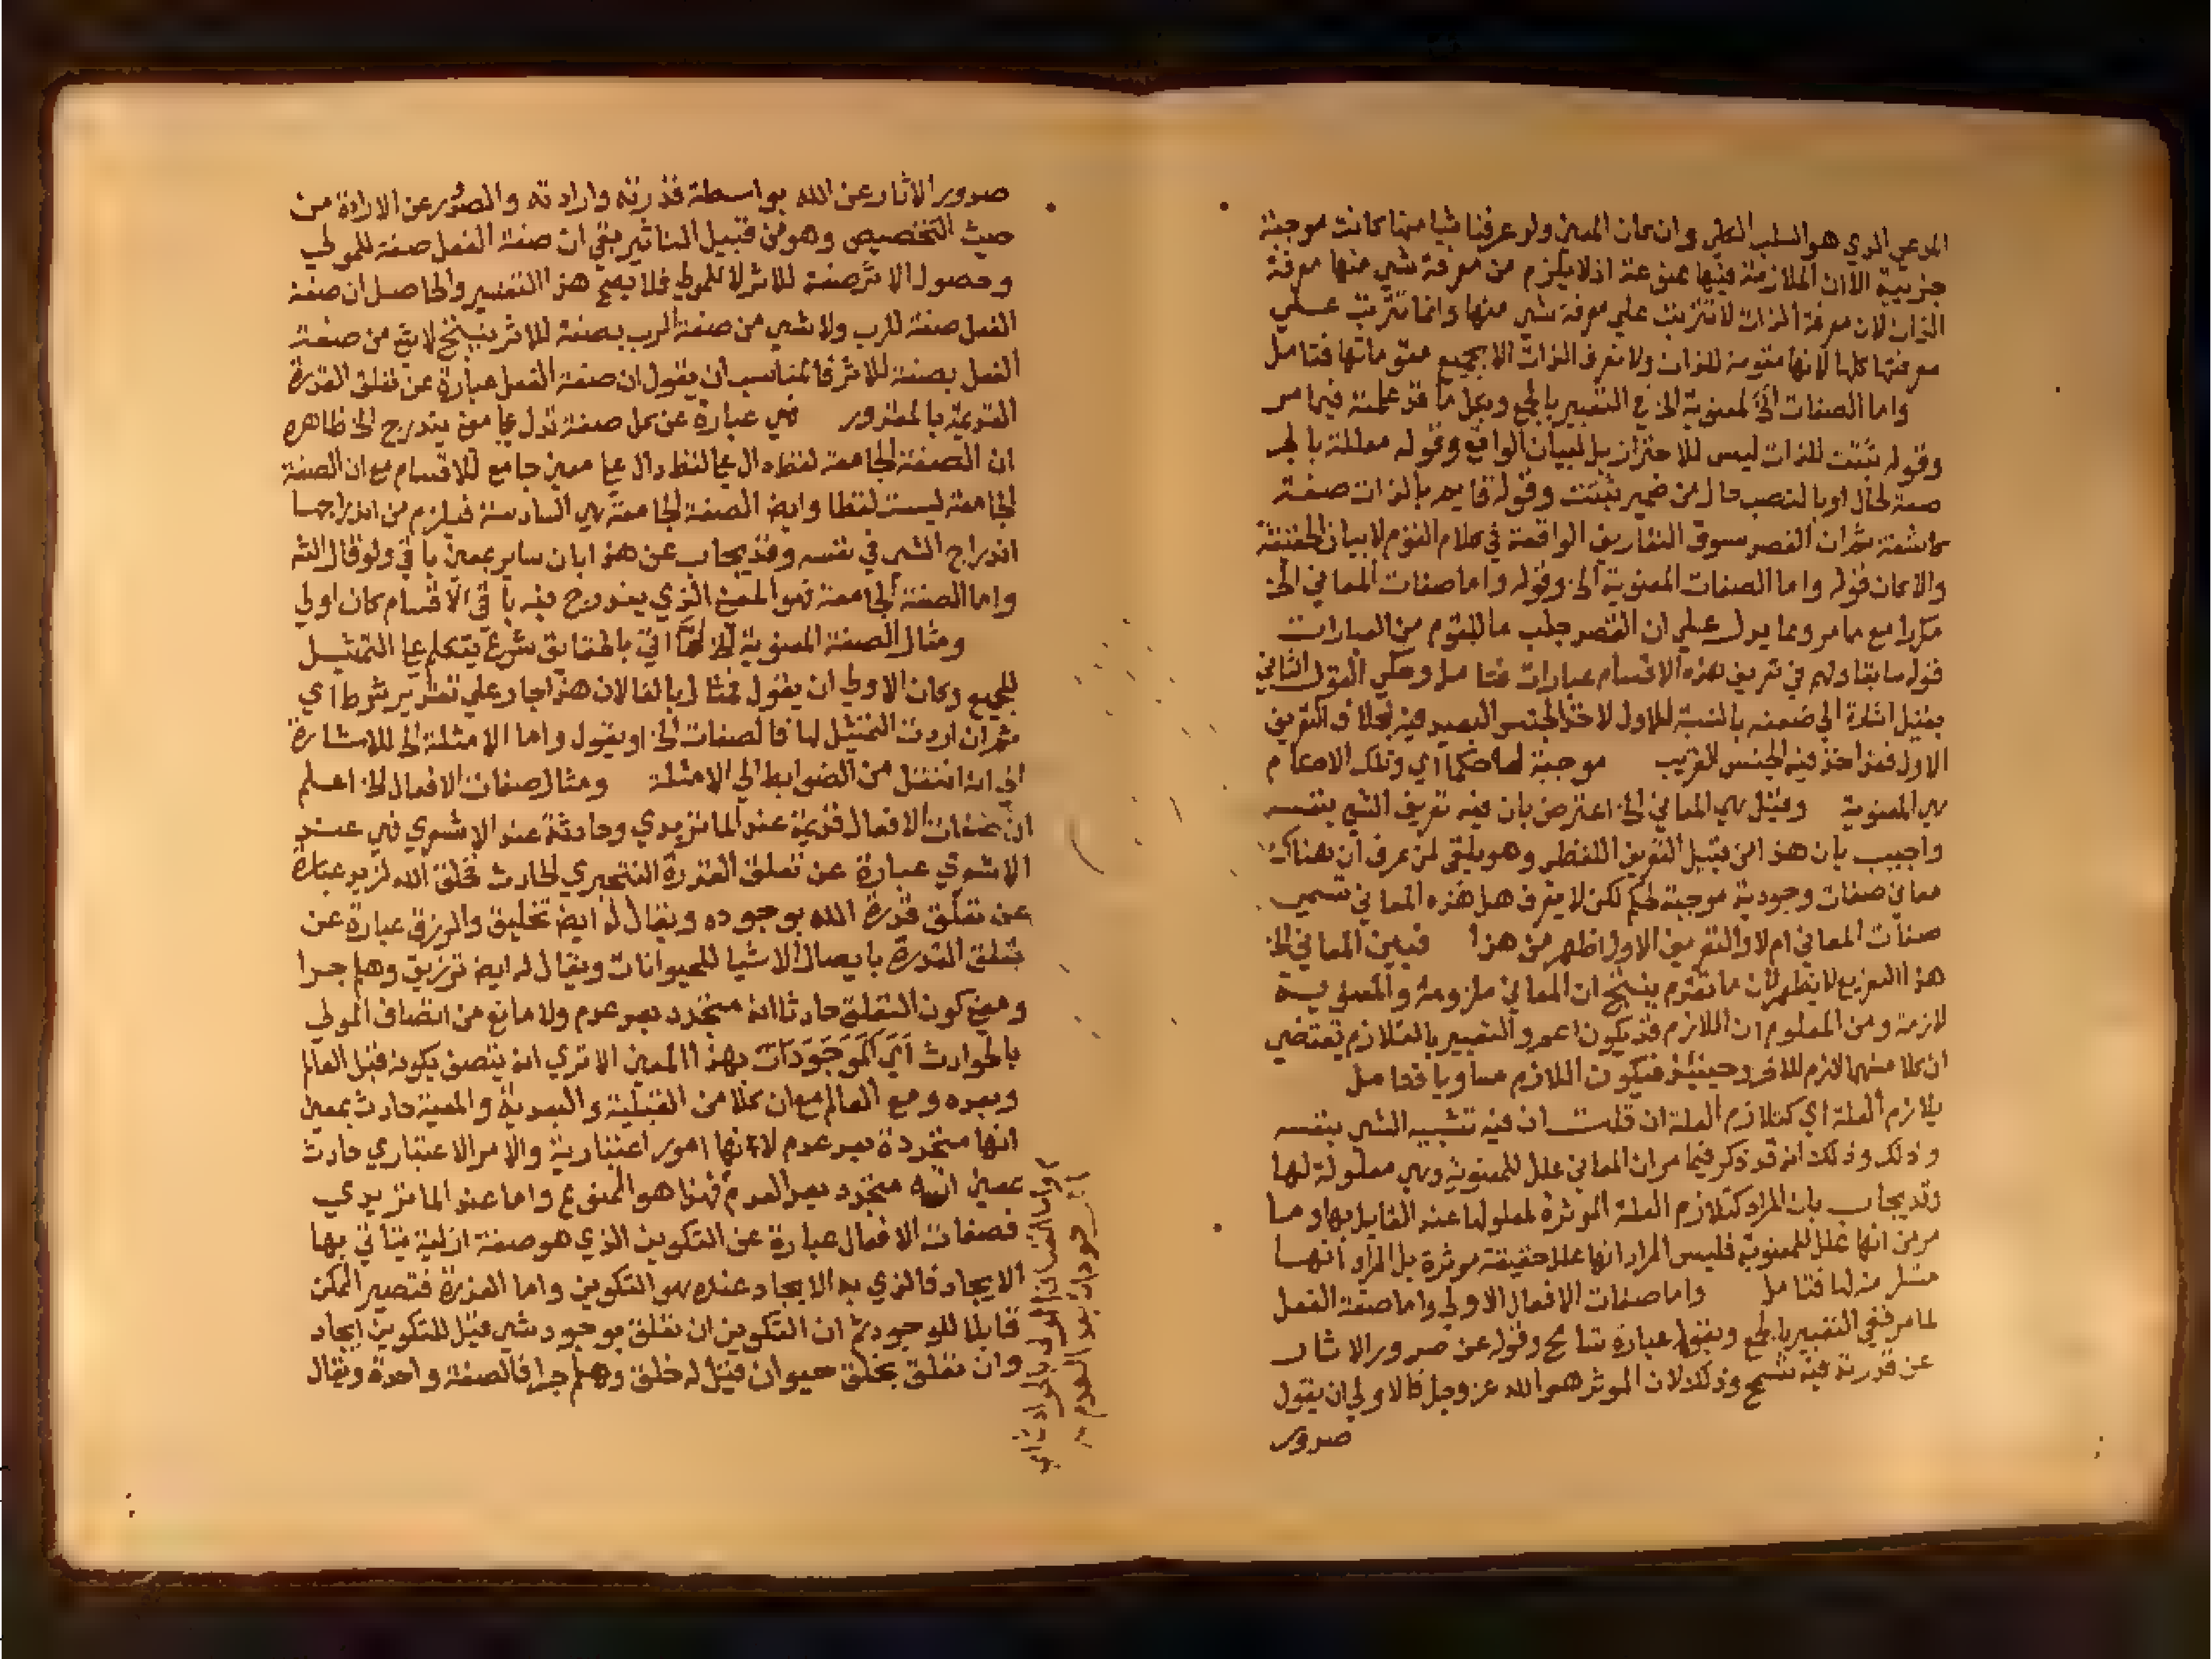 المدعي الذي هو السلب الكلي وان كان المعين ولو عرفنا شيا منها كانت موجبة
جزيية الا ان الملازمة فيها ممنوعة اذ لا يلزم من معرفة شي منها معرفة
الذات لان معرفة الذات لا تترتب علي معرفة شي منها وانما تترتب علي
معرفتها كلها لانها مقومة للذات ولا تعرف الذات الا بجميع مقوماتها فتامل
واما الصفات المعنوية الخ في التعبير بالجمع وبكل ما قد علمته فيما مر
وقوله تثبت للذات ليس للاحتراز بل لبيان الواقع وقوله معللة بالجر
صفة لحال او بالنصب حال من ضمير تثبت وقوله قايمة بالذات صفة
كاشفة ثم ان القصد سوق التعاريف الواقعة في كلام القوم لا بيان الحقيقة
والا كان قوله واما الصفات المعنوية الخ وقوله واما صفات المعاني الخ
مكررا مع ما مر ومما يدل علي ان القصد جلب ما للقوم من العبارات
قوله سابقا ولهم في تعريف هذه الاقسام عبارات فتامل وحكي القول الثاني
بقيل اشارة الي ضعفه بالنسبة للاول لاخذ الجنس البعيد فيه بخلاف التعريف
الاول فقد اخذ فيه الجنس القريب موجبة لها حكما اي وتلك الاحكام
هي المعنوية وقيل هي المعاني الخ اعترض بان فيه تعريف الشي بنفسه
واجيب بان هذا من قبيل التعريف اللفظي وهو يلقي لمن عرف ان هناك
معاني صفات وجودية موجبة لحكم لكن لا يعرف هل هذه المعاني تسمي
صفات المعاني ام لا والتعريف الاول اظهر من هذا فبين المعاني الخ
هذا التفريع لا يظهر لان ما تقدم ينتج ان المعاني ملزومة والمعنوية
لازمة ومن المعلوم ان اللازم قد يكون اعم والتعبير بالتلازم يقتضي
ان كلا منهما لازم للاخر وحينئذ فيكون اللازم مساويا فتامل
تلازم العلة اي كتلازم العلة ان قلت ان فيه تشبيه الشي بنفسه
وذلك وذلك انه قد ذكر فيما مر ان المعاني علل للمعنوية وهي معلولة لها
وقد يجاب بان المراد كتلازم العلة الموثرة لمعلولها عند القايل بها وما
مر من انها علل للمعنوية فليس المراد انها علل حقيقة موثرة بل المراد انها
ملزمة لها فتامل واما صفات الافعال الاولي واما صفة الفعل
لما مر ففي التعبير بالجمع وبقوله عبارة تسامح وقوله عن صدور الاثار
عن قدرته فيه تسمح وذلك لان الموثر هو الله عز وجل فالاولي ان يقول
صدور
صدور الاثار عن الله بواسطة قدرته وارادته والصدور عن الارادة من
حيث التخصيص وهو من قبيل التاثير بقي ان صفة الفعل صفة للمولي
وحصول الاثر صفة للاثر لا للمولي فلا يصح هذا التفسير والحاصل ان صفة
الفعل صفة للرب ولا شي من صفة الرب بصفة للاثر ينتج لا شي من صفة
الفعل بصفة للاثر فالمناسب ان يقول ان صفة الفعل عبارة عن تعلق القدرة
القديمة بالمقدور فهي عبارة عن كل صفة تدل علي معني يندرج الخ ظاهره
ان الصفة الجامعة لفظ دال علي لفظ دال علي معين جامع للاقسام مع ان الصفة
الجامعة ليست لفظا وايض الصفة الجامعة هي السادسة فيلزم من اندراجها
اندراج الشي في نفسه وقد يجاب عن هذا بان ساير بمعني باقي ولو قال الشه
واما الصفة الجامعة فهو المعني الذي يندرج فيه باقي الاقسام كان اولي
ومثال الصفة المعنوية الخ لما اتي بالحقايق شرع يتكلم علي التمثيل
للجميع وكان الاولي ان يقول فمثال بالفا لان هذا جار علي تقدير شرط اي
ثم ان اردت التمثيل لها فالصفات الخ او يقول واما الامثلة الخ للاشارة
الي انه انتقل من الضوابط الي الامثلة ومثال صفات الافعال الخ اعلم
ان صفات الافعال قديمة عند الماتريدي وحادثة عند الاشعري فهي عند
الاشعري عبارة عن تعلق القدرة التنجيزي الحادث فخلق الله لزيد عبارة
عن تعلق قدرة الله بوجوده ويقال له ايض تخليق والرزق عبارة عن
تعلق القدرة بايصال الاشيا للحيوانات ويقال له ايض ترزيق وهلم جرا
ومعني كون التعلق حادثا انه متجدد بعد عدم ولا مانع من اتصاف المولي
بالحوادث اي الموجودات بهذا المعين الا تري انه يتصف بكونه قبل العالم
وبعده ومع العالم مع ان كلا من القبلية والبعدية والمعية حادث بمعني
انها متجددة بعد عدم لانها امور اعتبارية والامر الاعتباري حادث
بمعني انه متجدد بعد العدم فهذا هو الممنوع واما عند الماتريدي
فصفات الافعال عبارة عن التكوين الذي هو صفة ازلية يتاتي بها
الايجاد فالذي به الايجاد عنده هو التكوين واما القدرة فتصير الممكن
قابلا للوجود ثم ان التكوين ان تعلق بوجود شي قيل للتكوين ايجاد
وان تعلق بخلق حيوان قيل له خلق وهلم جرا فالصفة واحدة ويقال
واما اتصاف المولي بالحوادث اي
الموجودات بعد العدم